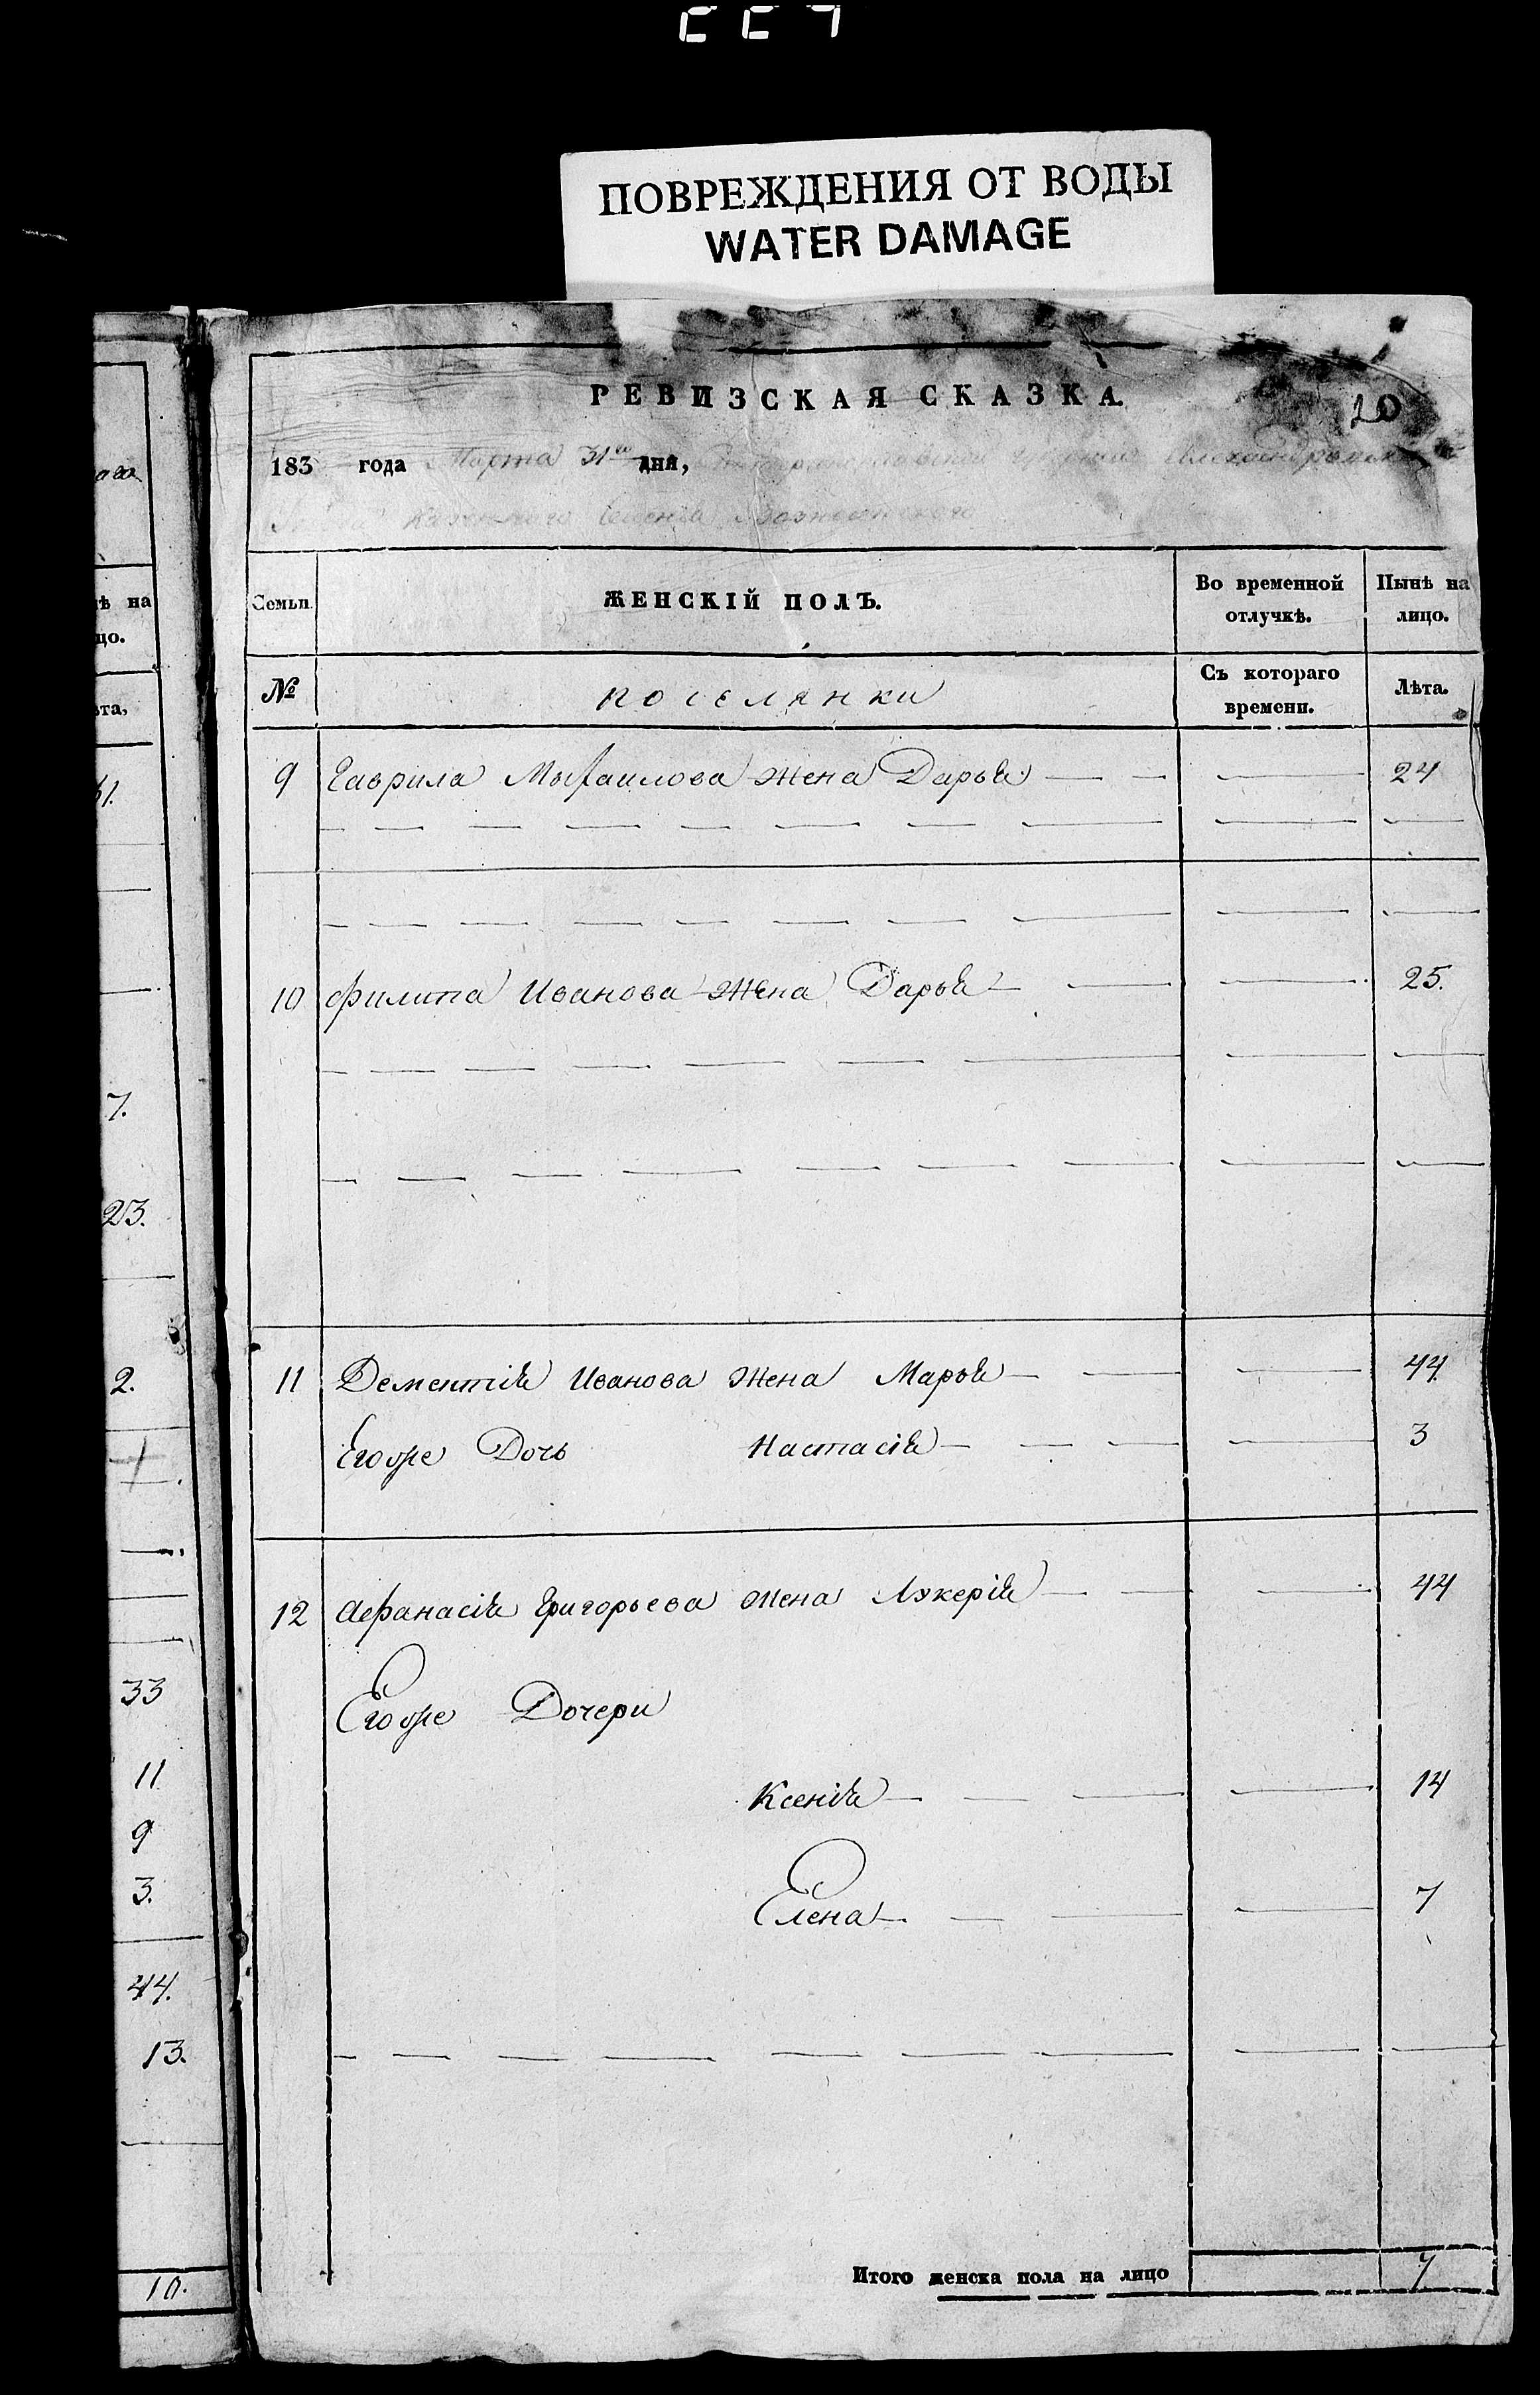 ПОВРЕЖДЕНИЯ ОТ ВОДЫ
WATER DAMAGE
РЕВИЗСКАЯ СКАЗКА.
20
183 года Марта 31го дня,
Казеннаго Селенія Вознесенского
Семьи. ЖЕНСКІЙ ПОЛЪ. Во временной отлучкѣ. Нынѣ на лицо.
№ поселянки Съ котораго времени. Лѣта.
9 Гаврила Михаилова жена Дарья 24
10 Филипа Иванова жена Дарья 25.
11 Дементія Иванова жена Марья 44
Егоже Дочь Настасія 3
12 Афанасія Григорьева жена Лукерія 44
Егоже Дочери
Ксенія 14
Елена 7
Итого женска пола на лицо 7
ѣ на
цо.
ѣта,
7.
23.
2.
33
11
9
3.
44.
13.
10.